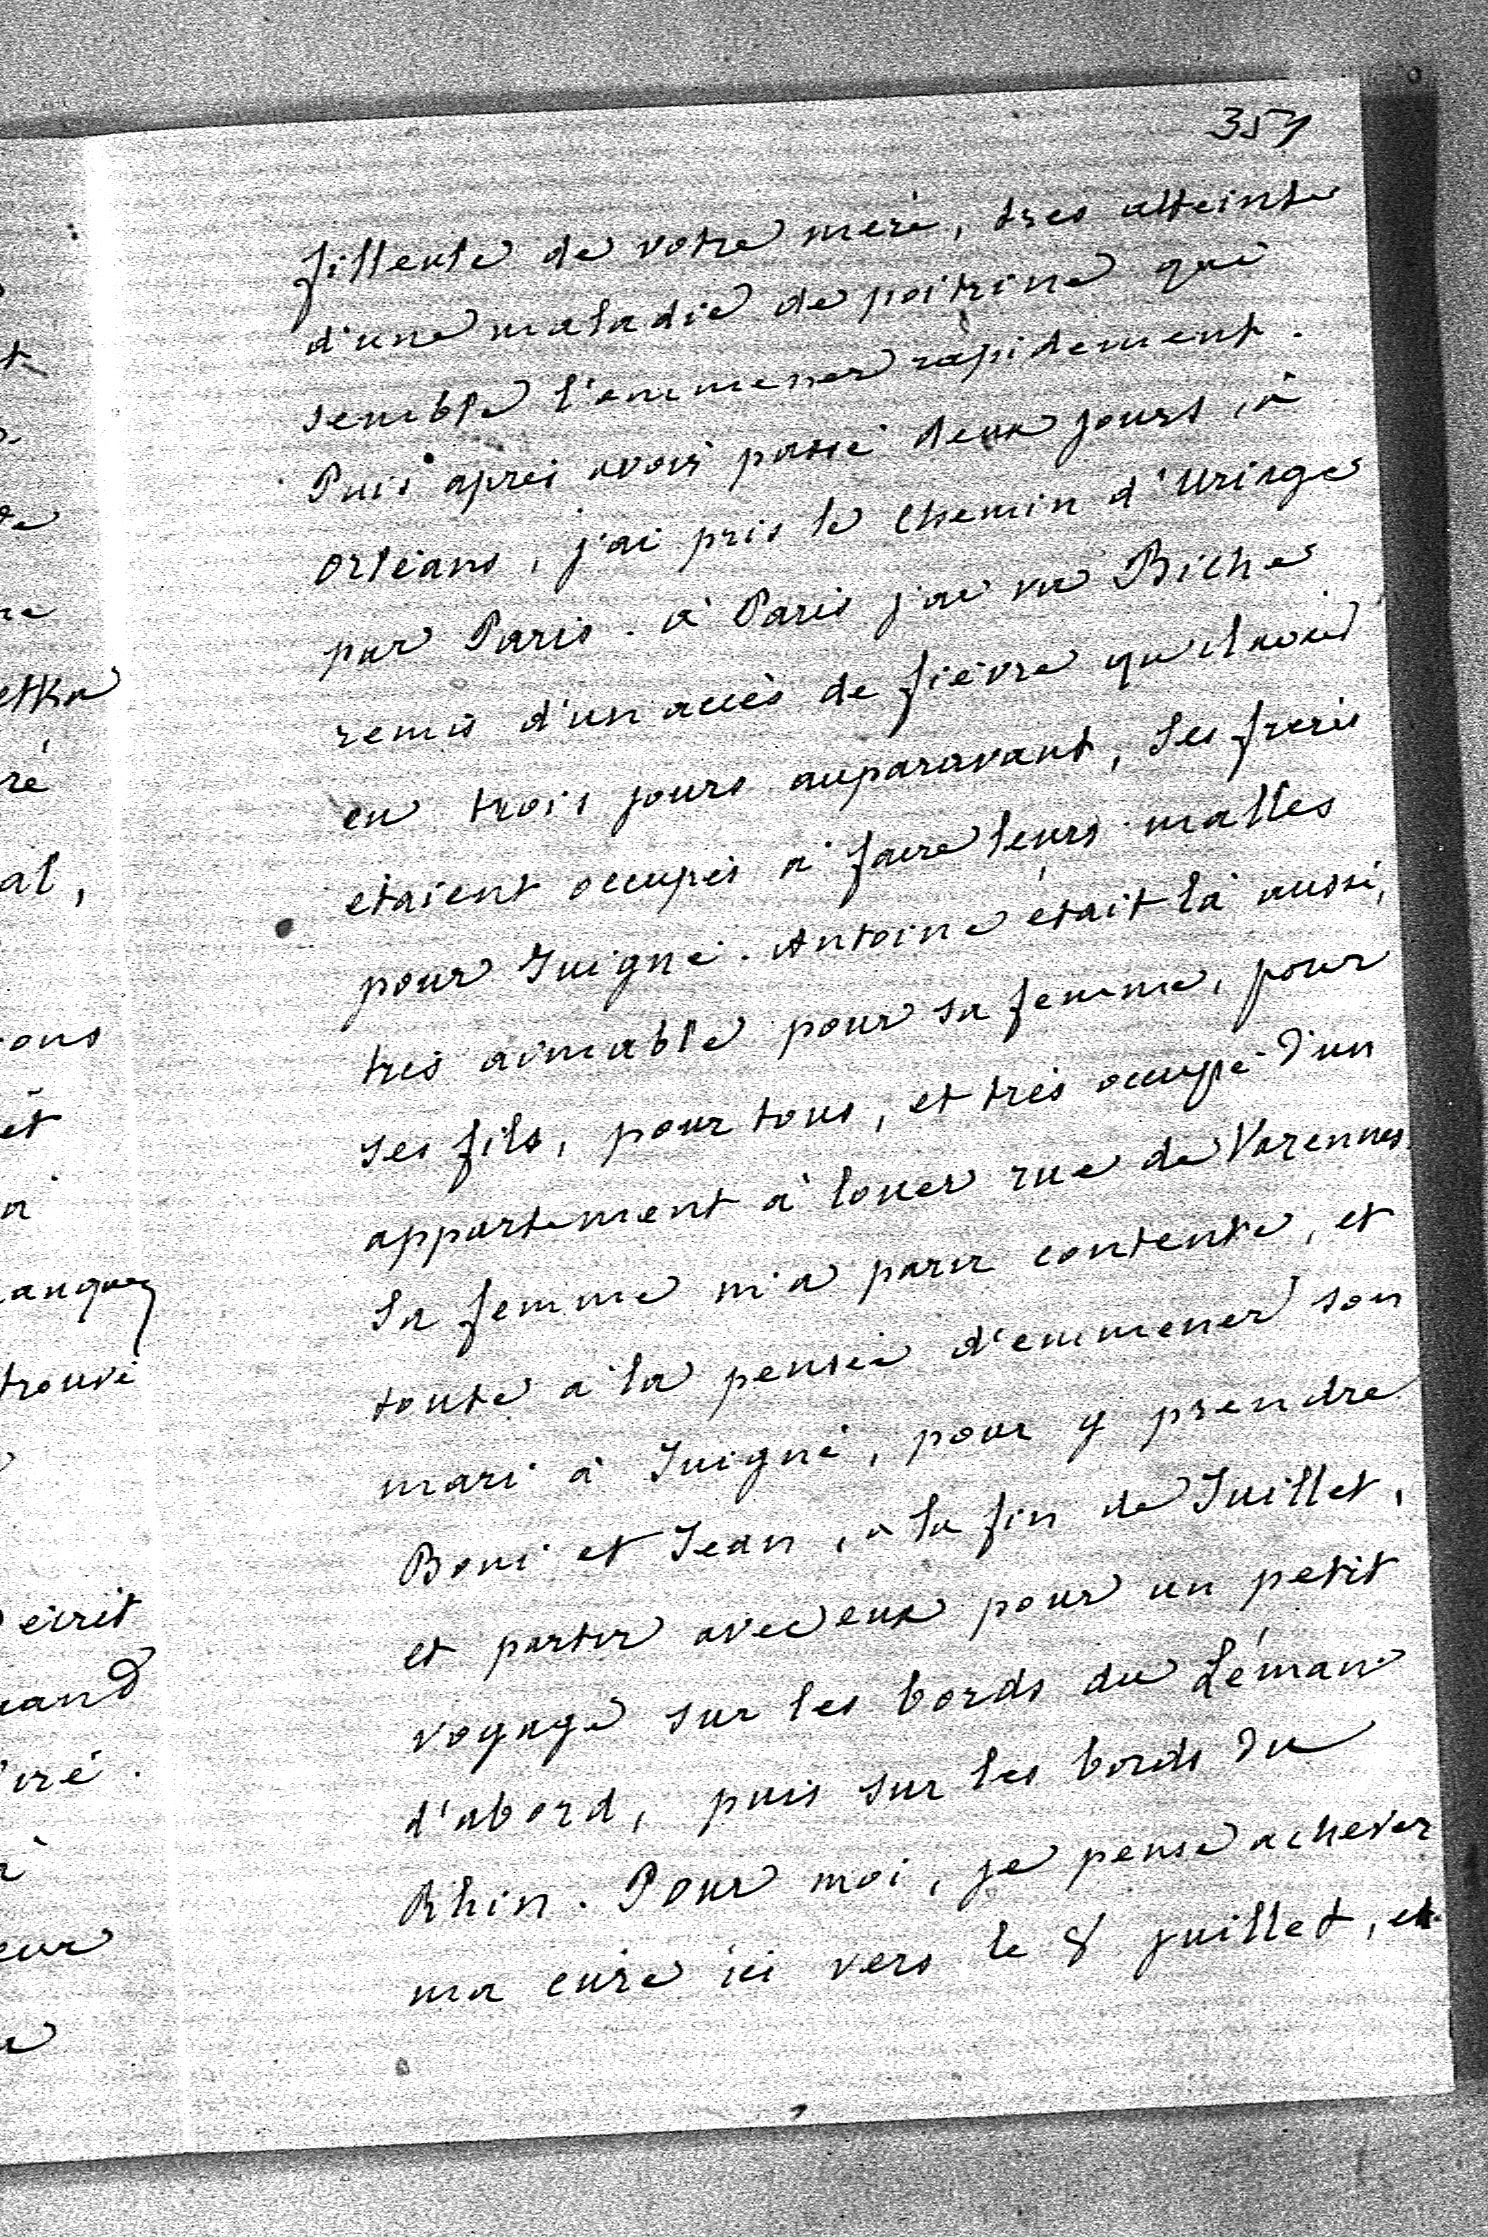 357
filleule de votre mère, très atteinte
d'une maladie de poitrine qui
semble l'emmener rapidement.
Puis après avoir passé deux jours à
Orléans, j'ai pris le chemin d'Uriage
par Paris. à Paris j'ai vu Biche
remis d'un accès de fièvre qu'il avait
eu trois jours auparavant, Ses frères
étaient occupés à faire leurs malles
pour Juigné. Antoine était là aussi,
très aimable pour sa femme, pour
ses fils, pour tous, et très occupé d'un
appartement à louer rue de Varennes.
Sa femme m'a paru contente, et
toute à la pensée d'emmener son
mari à Juigné, pour y prendre
Boni et Jean, à la fin de Juillet,
et partir avec eux pour un petit
voyage sur les bords du Léman
d'abord, puis sur les bords du
Rhin. Pour moi, je pense achever
ma cure ici vers le 8 juillet, et
etka
ré
al,
ons
et
trouvé
écrit